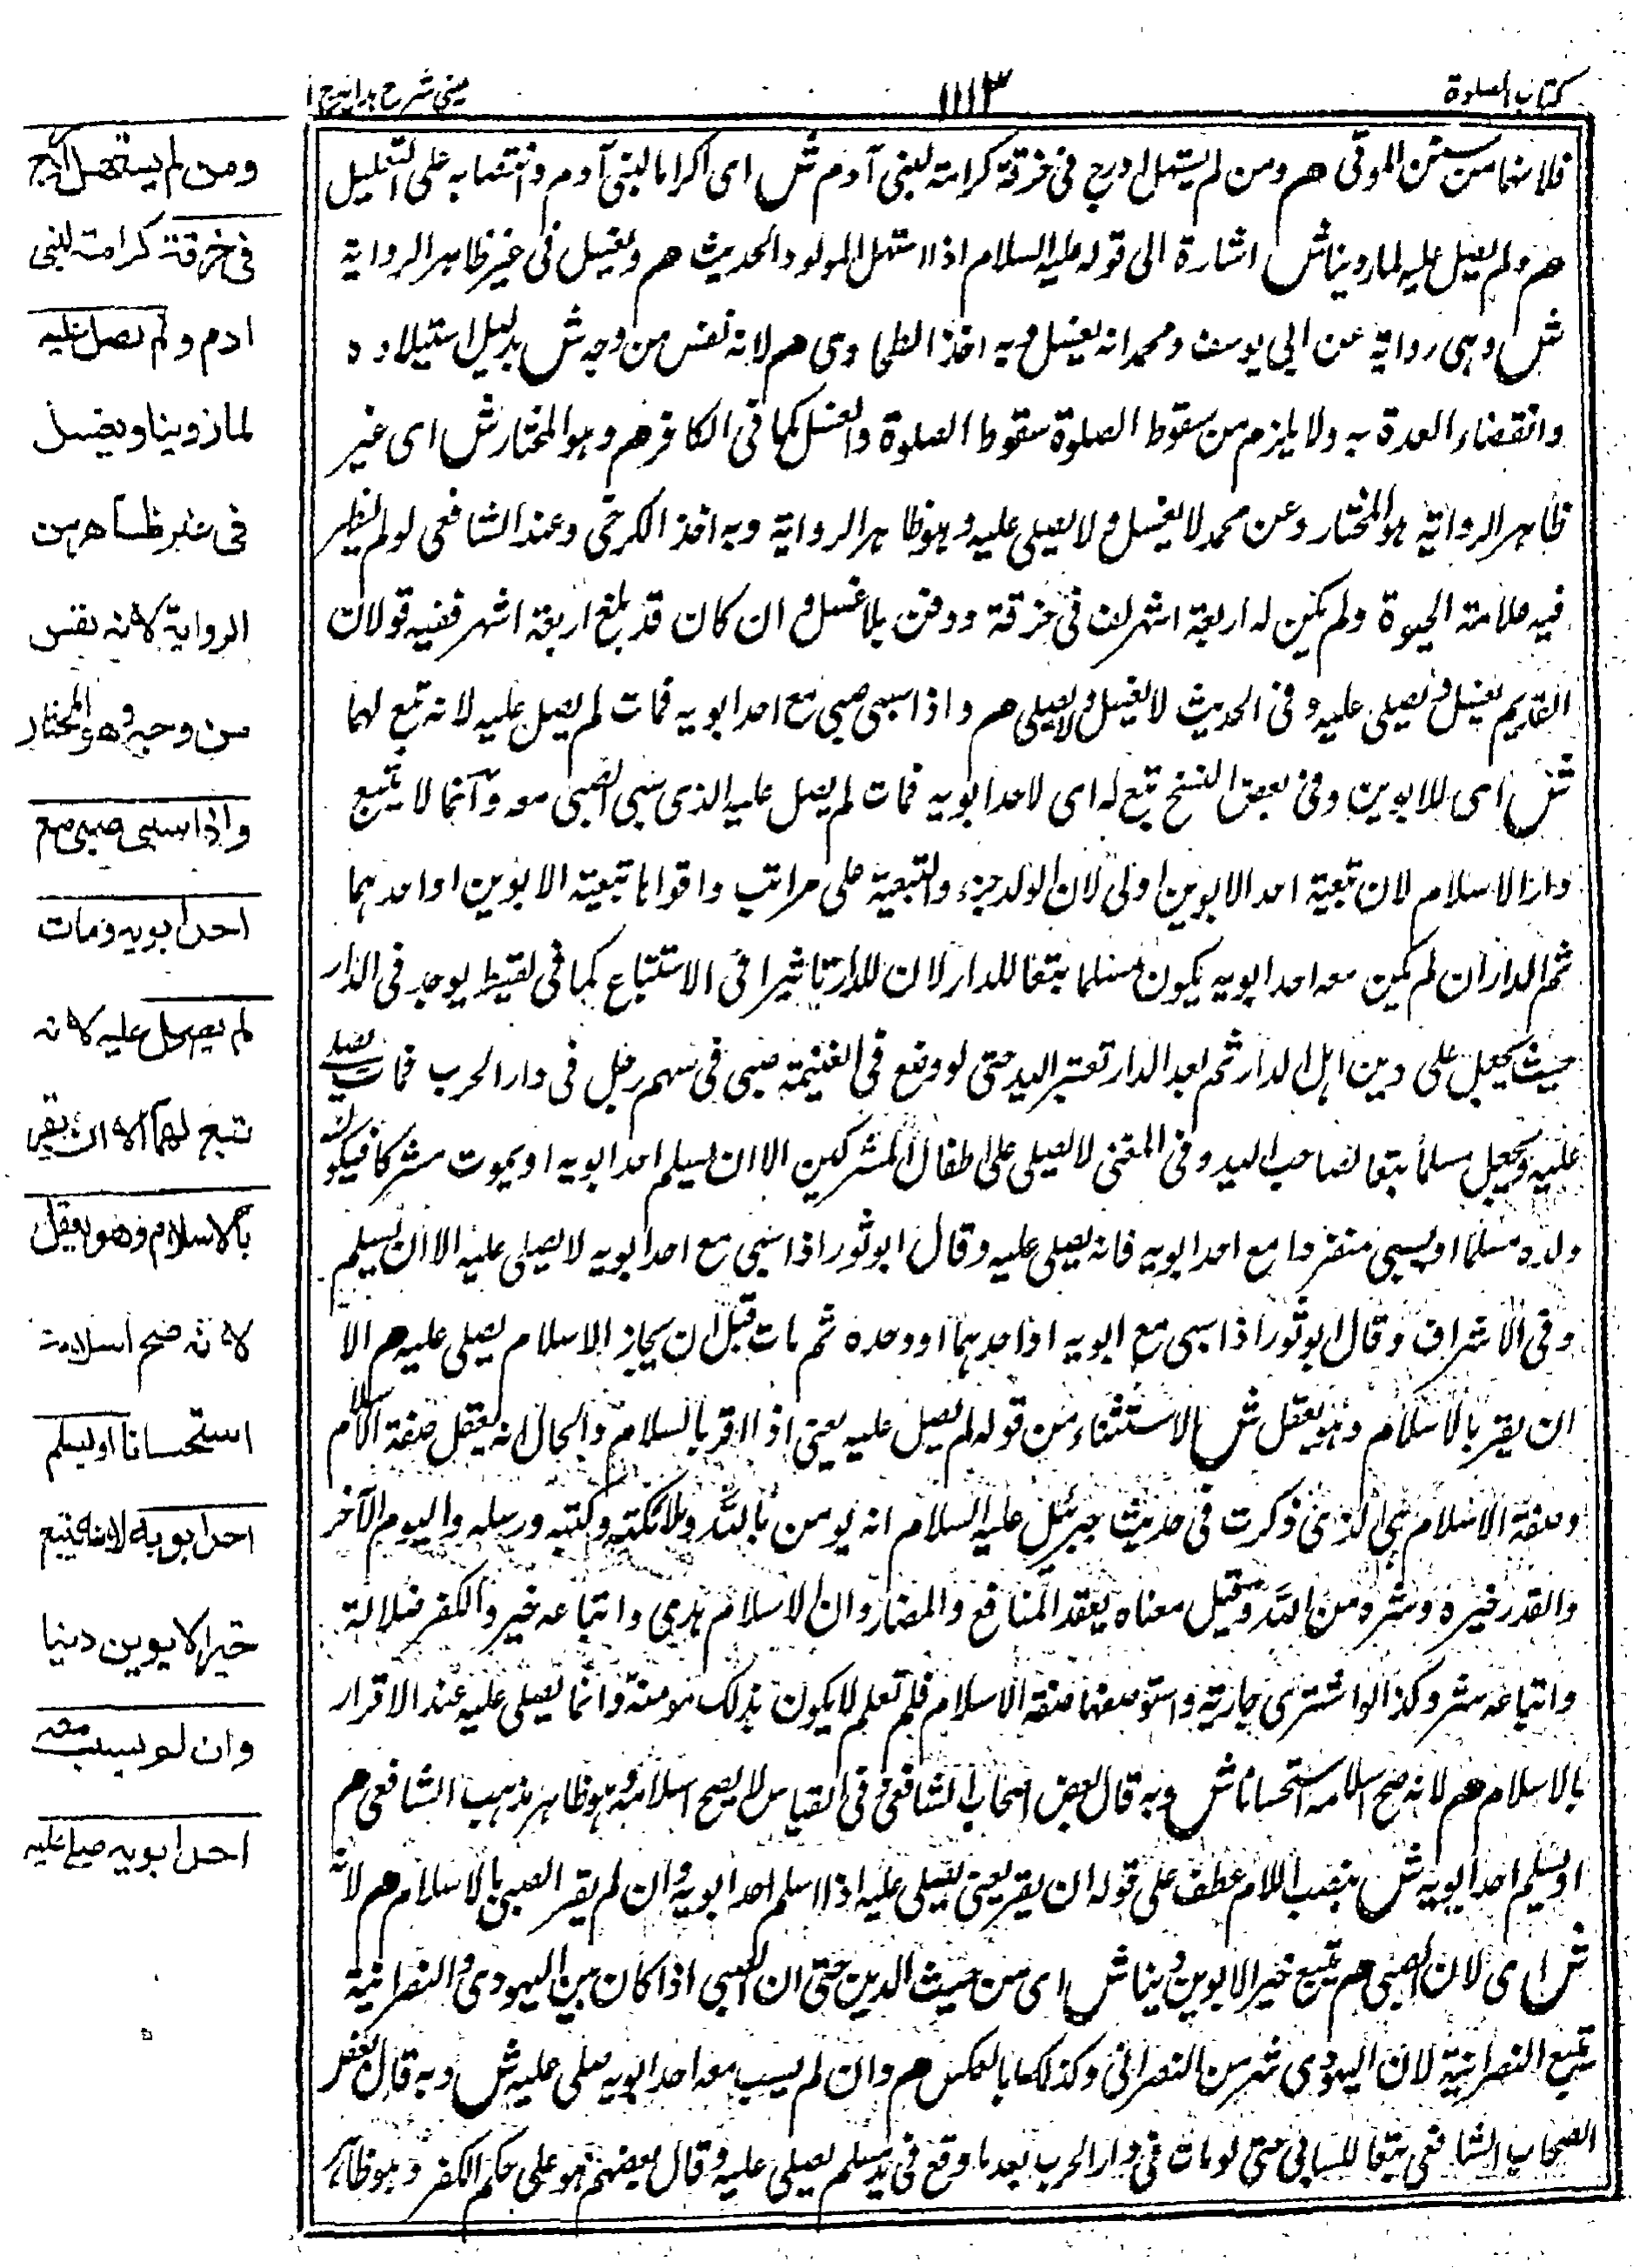 كتاب الصلوة
١١١٣
عيني شرح هدايه ج ١
فلانها من سنن الموتى هم ومن لم يستهل ادرج في خرقة كرامة لبني آدم ش اى اكراما لبني آدم وانتصابه على التعليل
هم ولم يصل عليه لما روينا ش اشارة الى قوله عليه السلام اذا استهل المولود الحديث هم ويغسل في غير ظاهر الرواية
ش وهى رواية عن ابي يوسف ومحمد انه يغسل وبه اخذ الطحاوى هم لانه نفس من وجه ش بدليل استيلاده
وانقضاء العدة به ولا يلزم من سقوط الصلوة سقوط الصلوة والغسل كما في الكافر هم وهو المختار ش اى غير
ظاهر الرواية هو المختار وعن محمد لا يغسل ولا يصلى عليه وهو ظاهر الرواية وبه اخذ الكرخي وعند الشافعي لو لم يظهر
فيه علامة الحيوة ولم يكن له اربعة اشهر لف في خرقة ودفن بلا غسل وان كان قد بلغ اربعة اشهر ففيه قولان
القديم يغسل ويصلى عليه وفى الحديث لا يغسل ولا يصلى هم واذا سبى صبي مع احد ابويه فمات لم يصل عليه لانه تبع لهما
ش اى للابوين وفى بعض النسخ تبع له اى لاحد ابويه فمات لم يصل عليه الذى سبى الصبى معه وانما لا يتبع
دار الاسلام لان تبعية احد الابوين اولى لان الولد جزء والتبعية على مراتب واقواها تبعية الابوين او احدهما
ثم الدار ان لم يكن معه احد ابويه يكون مسلما تبعا للدار لان للدار تاثيرا في الاستتباع كما في لقيط يوجد في الدار
حيث يجعل على دين اهل الدار ثم بعد الدار تعتبر اليد حتى لو وقع في الغنيمة صبى في سهم رجل في دار الحرب فمات يصلى
عليه ويجعل مسلما تبعا لصاحب اليد وفى المغنى لا يصلى على اطفال المشركين الا ان يسلم احد ابويه او يموت مشركا فيكون
ولده مسلما او يسبى منفردا مع احد ابويه فانه يصلى عليه وقال ابو ثور اذا سبى مع احد ابويه لا يصلى عليه الا ان يسلم
وفى الاشراف وقال ابو ثور اذا سبى مع ابويه او احدهما او وحده ثم مات قبل ان يختار الاسلام يصلى عليه هم الا
ان يقر بالاسلام وهو يعقل ش الاستثناء من قوله لم يصل عليه يعنى اذا اقر بالسلام والحال انه يعقل صفة الاسلام
وصفة الاسلام هى الذى ذكرت في حديث جبرئيل عليه السلام انه يومن بالله وملائكته وكتبه ورسله واليوم الآخر
والقدر خيره وشره من الله وقيل معناه يعقد المنافع والمضار وان الاسلام هدى واتباعه خير والكفر ضلالة
واتباعه شر وكذا لو اشترى جارية واستوصفها صفة الاسلام فلم تعلم لا يكون بذلك مومنة وانما يصلى عليه عند الاقرار
بالاسلام هم لانه صح اسلامه استحسانا ش وبه قال بعض اصحاب الشافعي وفى القياس لا يصح اسلامه وهو ظاهر مذهب الشافعي هم
او يسلم احد ابويه ش بنصب اللام عطف على قوله ان يقر يعنى يصلى عليه اذا اسلم احد ابويه وان لم يقر الصبى بالاسلام هم لانه
ش اى لان الصبى هم يتبع خير الابوين دينا ش اى من حيث الدين حتى ان الصبى اذا كان بين اليهودى والنصرانية
تتبع النصرانية لان اليهودى شر من النصرانى وكذلك بالعكس هم وان لم يسب معه احد ابويه صلى عليه ش وبه قال بعض
اصحاب الشافعي تبعا للسابى حتى لو مات في دار الحرب بعد ما وقع في يد مسلم يصلى عليه وقال بعضهم هو على حكم الكفر وهو ظاهر
ومن لم يستهل ادرج
فى خرقة كرامة لبنى
ادم ولم يصل عليه
لما روينا ويغسل
فى غير ظاهر من
الرواية لانه نفس
من وجه وهو المختار
واذا سبى صبى مع
احد ابويه ومات
لم يصل عليه لانه
تبع لهما الا ان يقر
بالاسلام وهو يعقل
لانه صح اسلامه
استحسانا او يسلم
احد ابويه لانه يتبع
خير الابوين دينا
وان لم يسب معه
احد ابويه صلى عليه